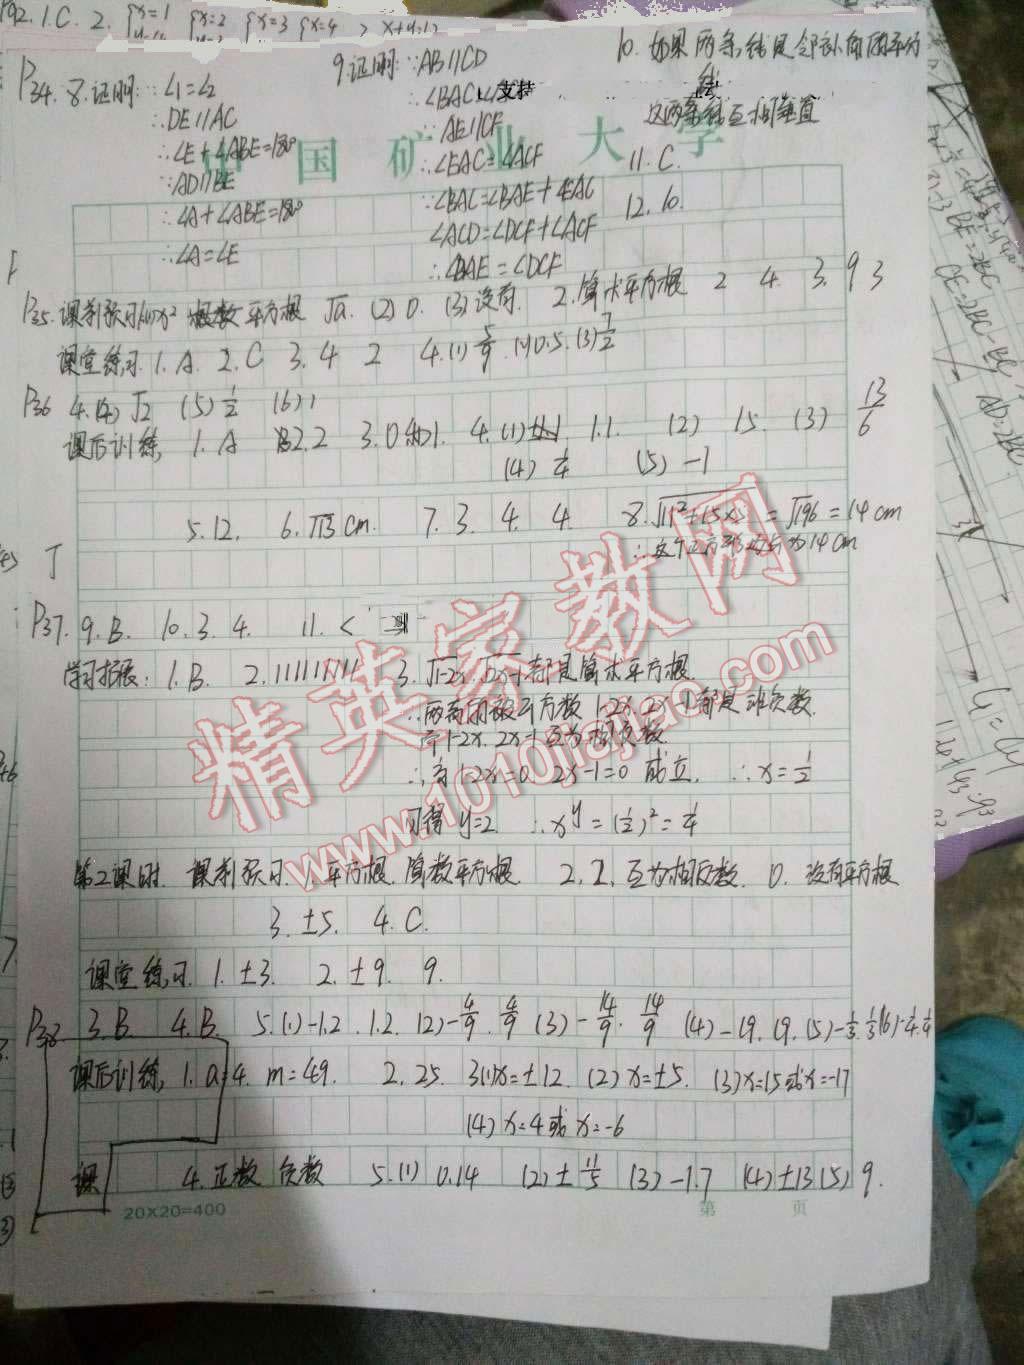 P92. 1.C. 2. {x=1 {x=2 {x=3 {x=4
P34. 8.证明: ∵∠1=∠2
∴DE∥AC
∴∠E+∠ABE=180°
∵AD∥BE
∴∠A+∠ABE=180°
∴∠A=∠E
9.证明: ∵AB∥CD
∴∠BAC=∠
支持
∵AE∥CF
∴∠EAC=∠ACF
∵∠BAC=∠BAE+∠EAC
∠ACD=∠DCF+∠ACF
∴∠BAE=∠DCF
10. 如果两条线是邻补角的平分
线
这两条线互相垂直
11. C.
12. 10.
中国矿业大学
P35. 课前预习 1.(1) x² 根数 平方根 √a. (2) 0. (3) 没有. 2. 算术平方根 2 4. 3. 9 3
课堂练习. 1. A. 2. C 3. 4 2 4. (1) 5/9. (2) 0.5. (3) 7/2
P36 4. (4) √2 (5) 1/2 (6) 1
课后训练. 1. A 2. 2 3. 0和1. 4. (1) 1.1. (2) 15. (3) 13/6
(4) 1/4 (5) -1
5. 12. 6. √13 cm. 7. 3. 4. 4 8. √11²+15×5 = √196 = 14 cm
∴这个正方形边长为14 cm
P37. 9. B. 10. 3. 4. 11. <
学习拓展: 1. B. 2. 111111111 3. √1-2x. √2x-1 都是算术平方根.
∴两者的被开方数 1-2x. 2x-1 都是非负数.
而1-2x. 2x-1 互为相反数
∴有1-2x=0. 2x-1=0 成立. ∴x=1/2
可得 y=2 ∴x^y=(1/2)²=1/4
第2课时. 课前预习. 1. 平方根. 算数平方根. 2. 2. 互为相反数. 0. 没有平方根
3. ±5. 4. C.
课堂练习. 1. ±3. 2. ±9. 9.
P38 3. B. 4. B. 5. (1) -1.2. 1.2. (2) -4/9. 4/9 (3) -14/9. 14/9 (4) -19. 19. (5) -1/3. 1/3 (6) -1/4. 1/4
课后训练. 1. a=4. m=49. 2. 25. 3. (1) x=±12. (2) x=±5. (3) x=15或x=-17
(4) x=4或x=-6
课 4. 正数 负数 5. (1) 0.14 (2) ±11/5 (3) -1.7 (4) ±13 (5) 9.
20×20=400 第 页
精英家教网
www.1010jiajiao.com